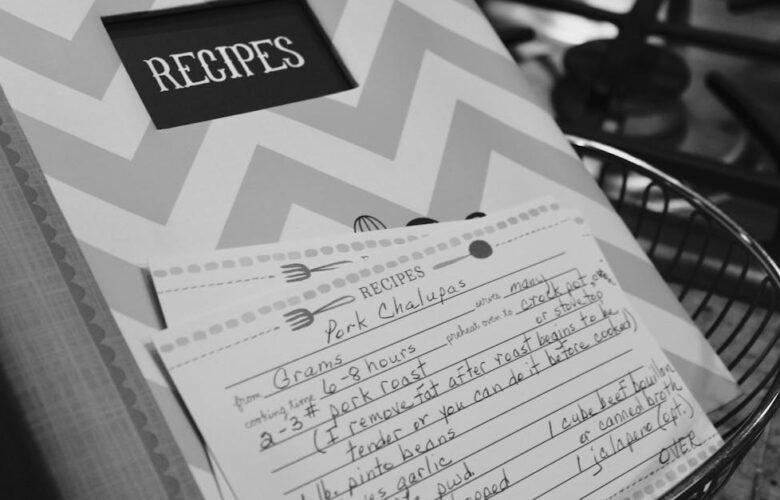 RECIPES
RECIPES
Pork Chalupas
from Grams serves many
cooking time 6-8 hours preheat oven to crock pot, or
or stove top
2-3 # pork roast
(I remove fat after roast begins to be
tender or you can do it before cooked)
lb. pinto beans 1 cube beef bouillon
garlic or canned broth
pwd. 1 jalapeno (opt.)
OVER